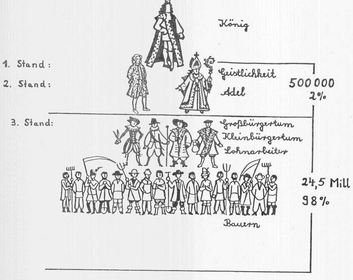 König
1. Stand:
Geistlichkeit
2. Stand:
Adel
500 000
2%
3. Stand:
Großbürgertum
Kleinbürgertum
Lohnarbeiter
24,5 Mill
98%
Bauern